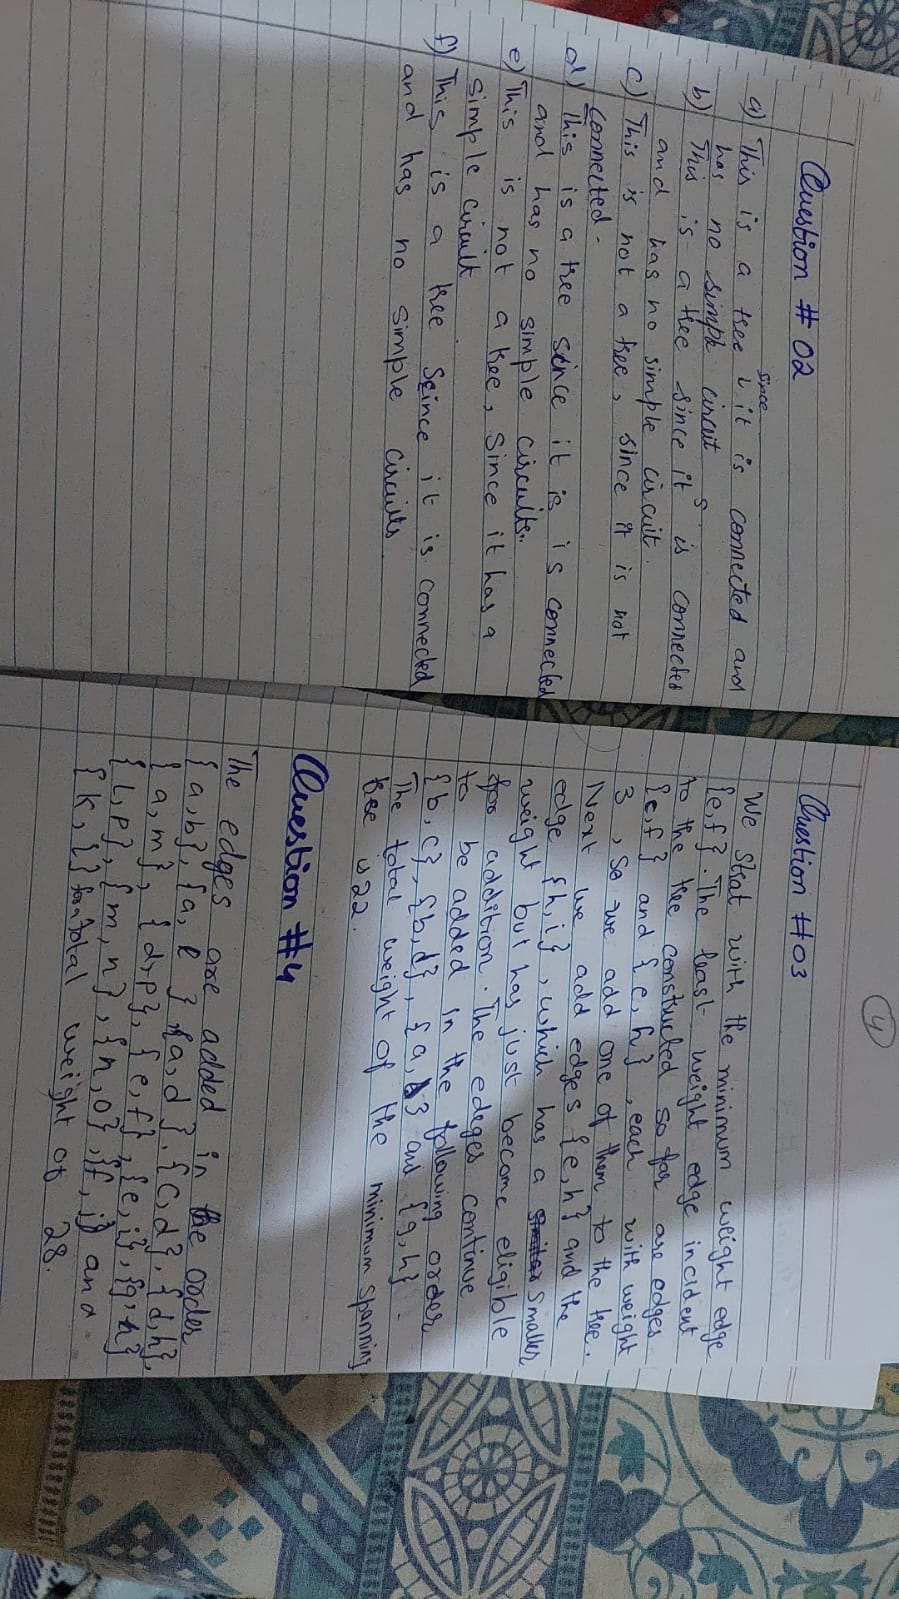 Question # 02
a) This is a tree since it is connected and
has no simple circuit
b) This is a tree since it is connected
and has no simple circuit.
c) This is not a tree, since it is not
connected.
d) This is a tree since it is is connected
and has no simple circuits..
e) This is not a tree, Since it has a
simple circuit
f) This is a tree Seince it is connected
and has no simple circuits
4
Question #03
We strat with the minimum weight edge
{e,f}. The least weight edge incident
to the tree constructed so far are edges
{c,f} and {e,h}, each with weight
3, so we add one of them to the tree.
Next we add edges {e,h} and the
edge {h,i}, which has a smaller
weight but has just become eligible
for addition. The edeges continue
to be added in the following order
{b,c}, {b,d}, {a,b} and {g,h}.
The total weight of the minimum spanning
tree is 22.
Question #4
The edges are added in the order
{a,b}, {a,e}, {a,d}, {c,d}, {d,h},
{a,m}, {d,p}, {e,f}, {e,i}, {g,h}
{l,p}, {m,n}, {n,o}, {f,j} and
{k,l} for a total weight of 28.